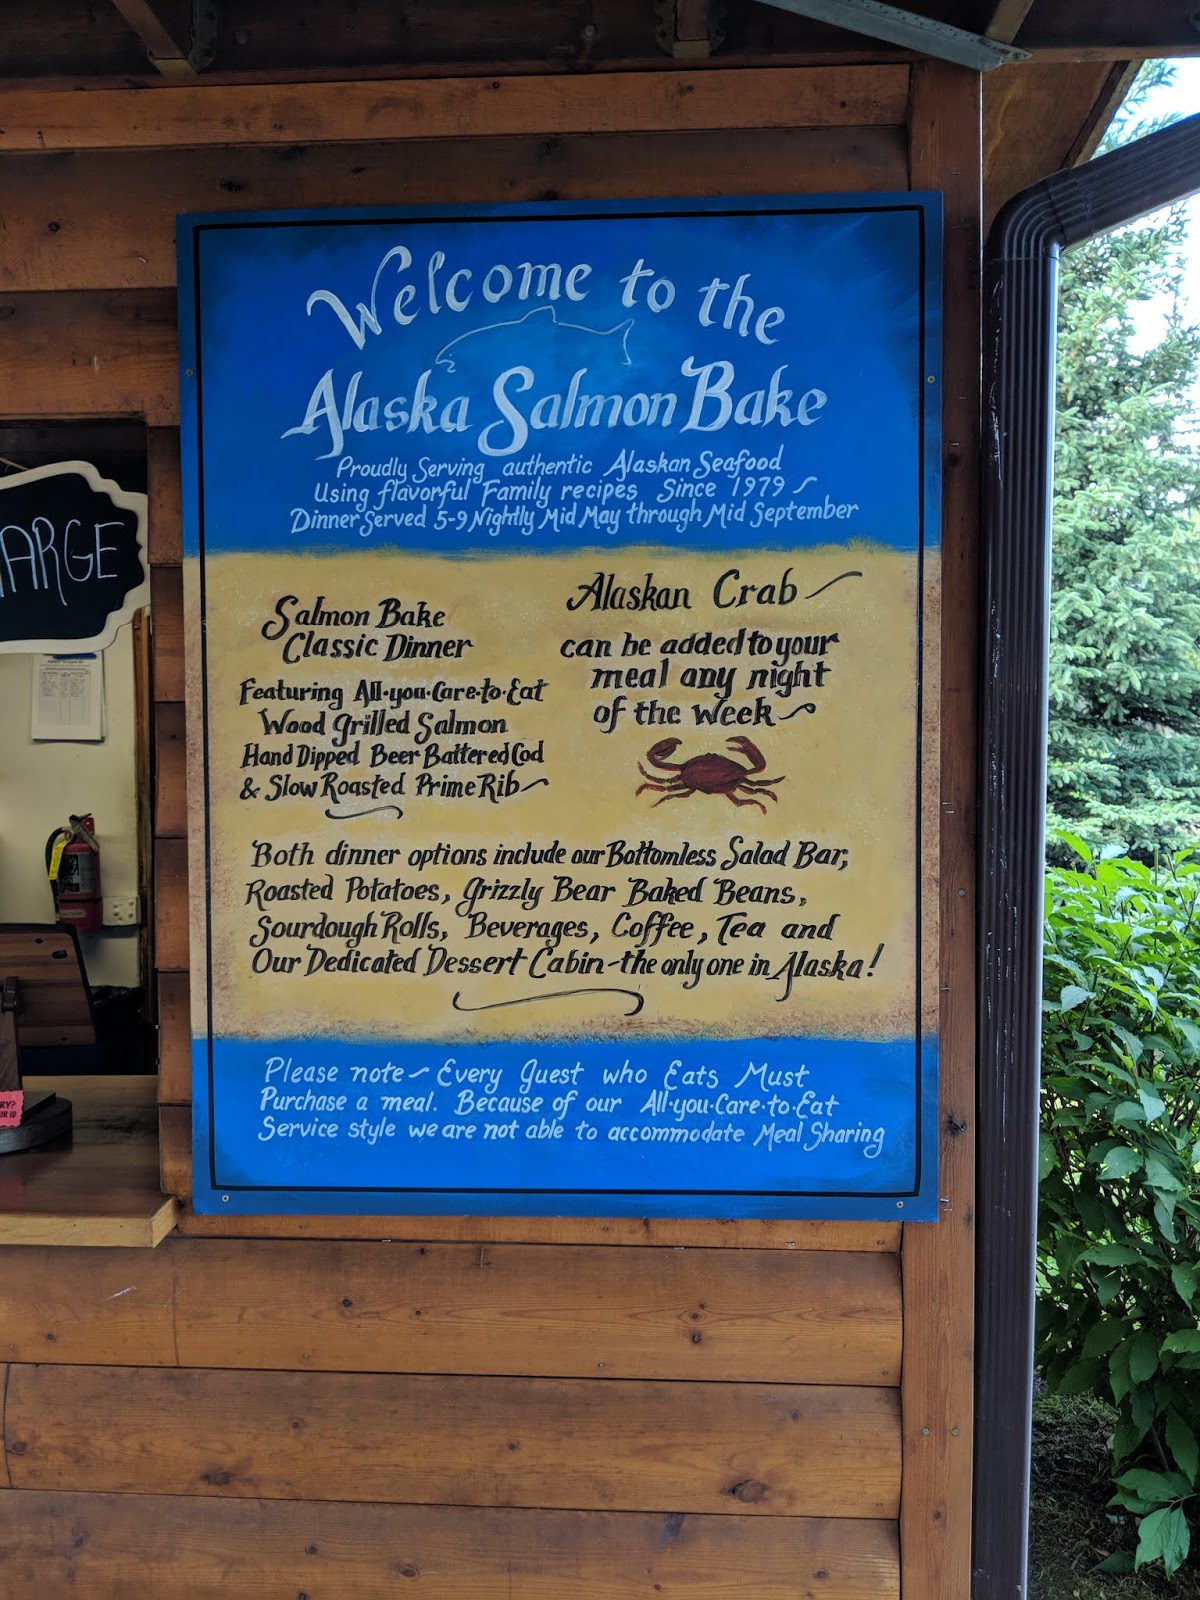 Welcome to the
Alaska Salmon Bake
Proudly Serving authentic Alaskan Seafood
Using flavorful Family recipes Since 1979
Dinner Served 5-9 Nightly Mid May through Mid September
Salmon Bake
Classic Dinner
Featuring All·you·Care·to·Eat
Wood Grilled Salmon
Hand Dipped Beer Battered Cod
& Slow Roasted Prime Rib
Alaskan Crab
can be added to your
meal any night
of the week
Both dinner options include our Bottomless Salad Bar,
Roasted Potatoes, Grizzly Bear Baked Beans,
Sourdough Rolls, Beverages, Coffee, Tea and
Our Dedicated Dessert Cabin - the only one in Alaska!
Please note ~ Every Guest who Eats Must
Purchase a meal. Because of our All·you·Care·to·Eat
Service style we are not able to accommodate Meal Sharing
ARGE
RY?
UR ID